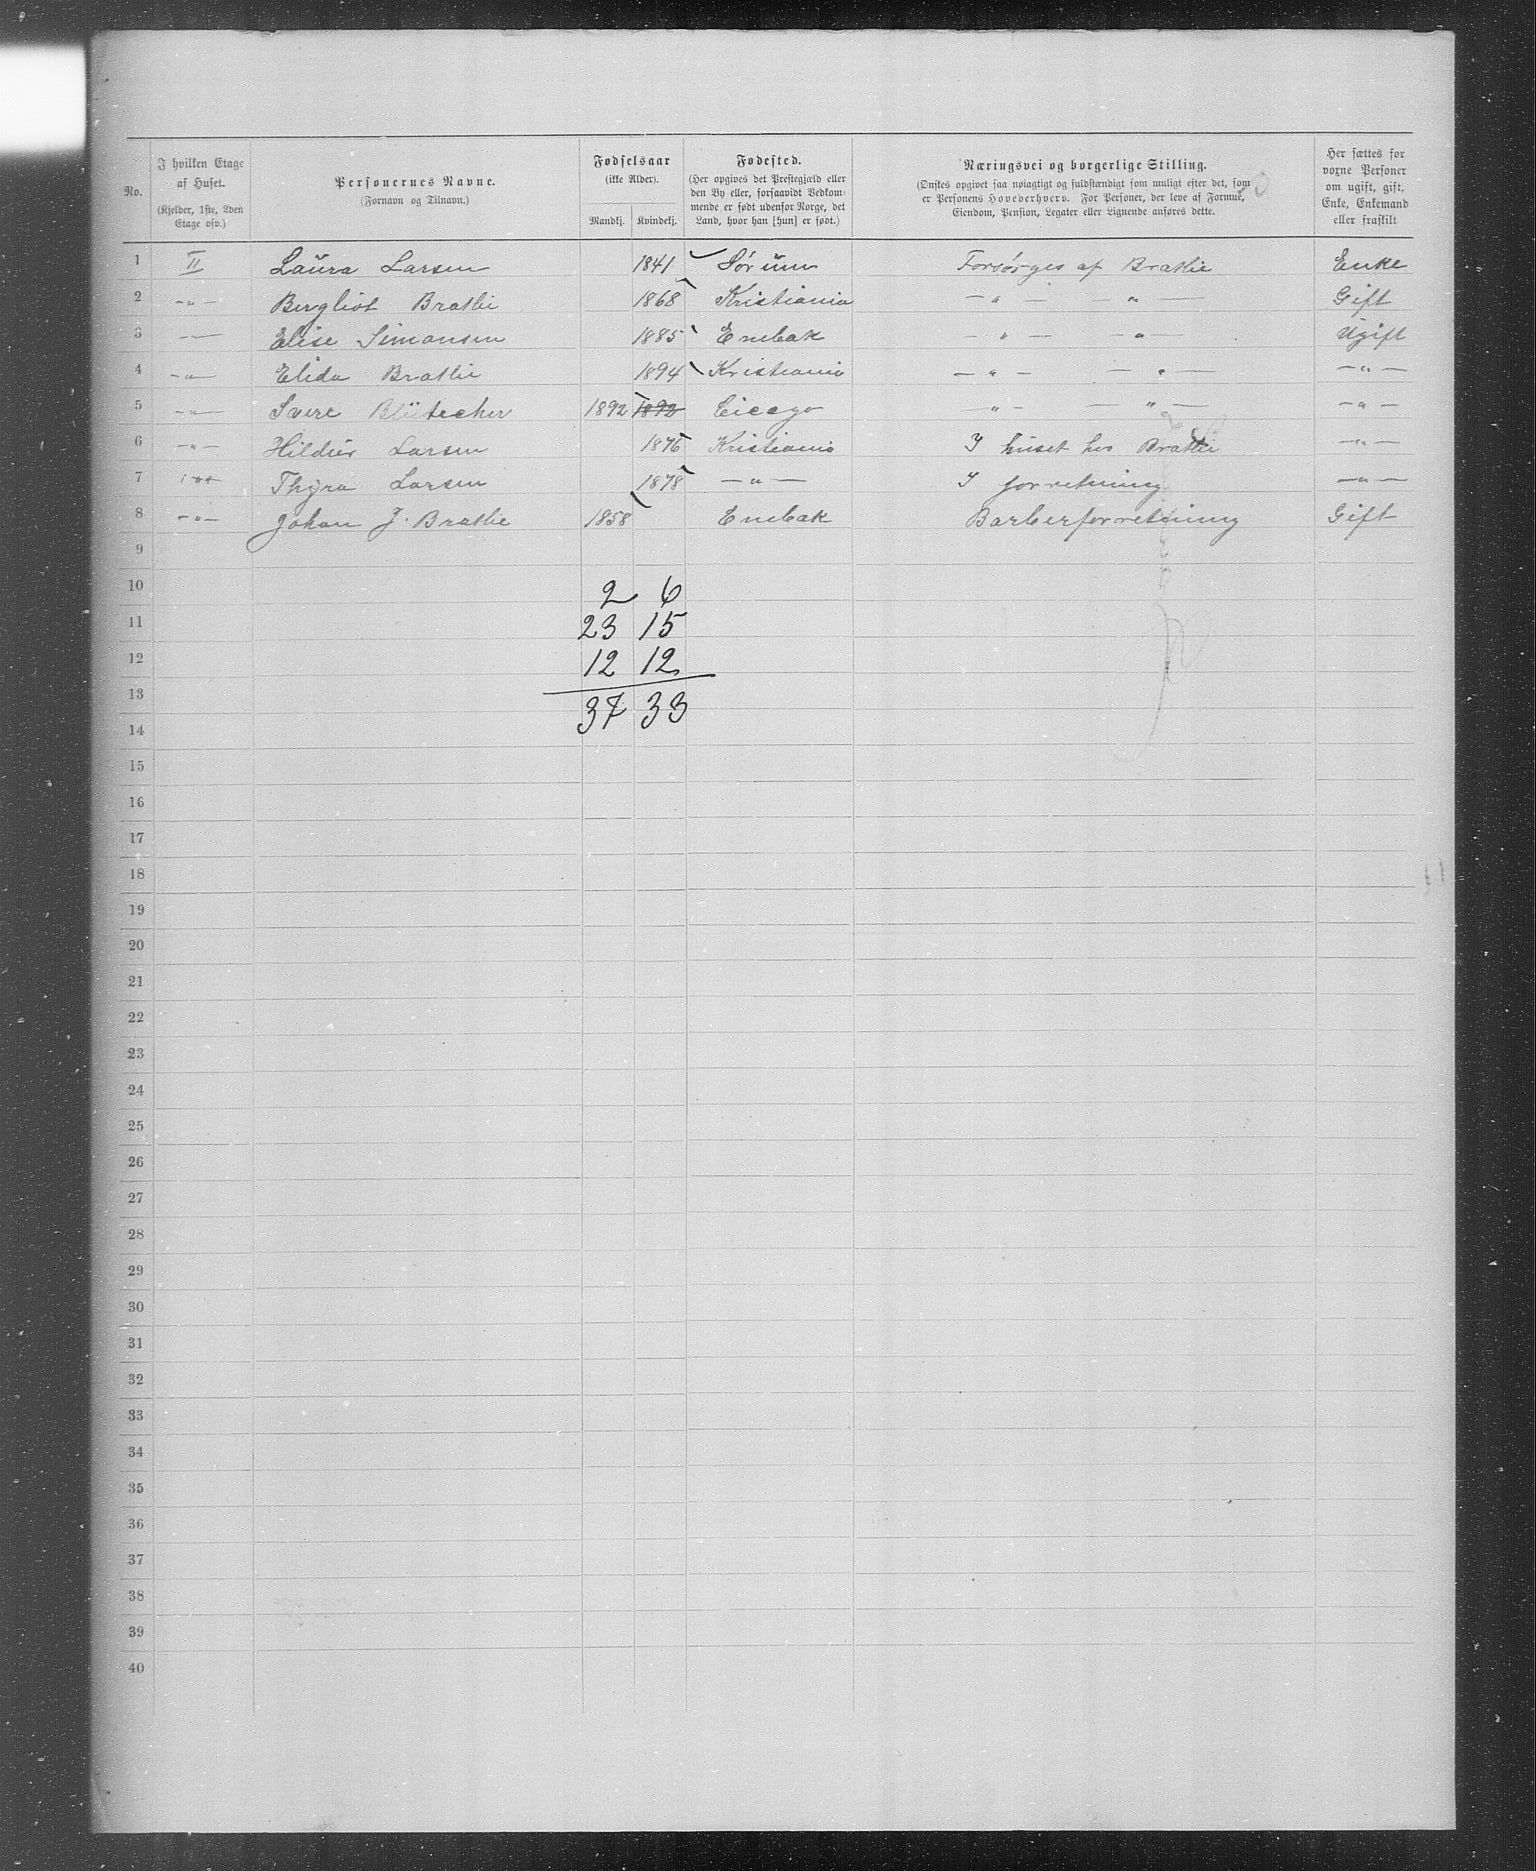 No. | I hvilken Etage af Huset. (Kjelder, 1ste, 2den Etage osv.) | Personernes Navne. (Fornavn og Tilnavn.) | Fødselsaar (ikke Alder). Mandkj. | Kvindekj. | Fødested. (Her opgives det Prestegjæld eller den By eller, forsaavidt Vedkommende er født udenfor Norge, det Land, hvor han [hun] er født.) | Næringsvei og borgerlige Stilling. (Ønskes opgivet saa nøiagtigt og fuldstændigt som muligt efter det, som er Personens Hovederhverv. For Personer, der leve af Formue, Eiendom, Pension, Legater eller Lignende anføres dette. | Her sættes for voxne Personer om ugift, gift, Enke, Enkemand eller fraskilt
1 II Laura Larsen 1841 Sørum Forsørges af Bratlie Enke
2 -"- Bergliot Bratlie 1868 Kristiania -"- -"- Gift
3 -"- Elise Simonsen 1885 Enebak -"- -"- Ugift
4 -"- Elida Bratlie 1894 Kristiania -"- -"- -"-
5 -"- Svere Blütecher 1892 1892 Cicago -"- -"- -"-
6 -"- Hildur Larsen 1876 Kristiania I huset hos Bratlie -"-
7 -"- Thyra Larsen 1878 -"- I forretning -"-
8 -"- Johan J. Bratlie 1858 Enebak Barberforretning Gift
9
10 2 6
11 23 15
12 12 12
13
37 33
14
15
16
17
18
19
20
21
22
23
24
25
26
27
28
29
30
31
32
33
34
35
36
37
38
39
40